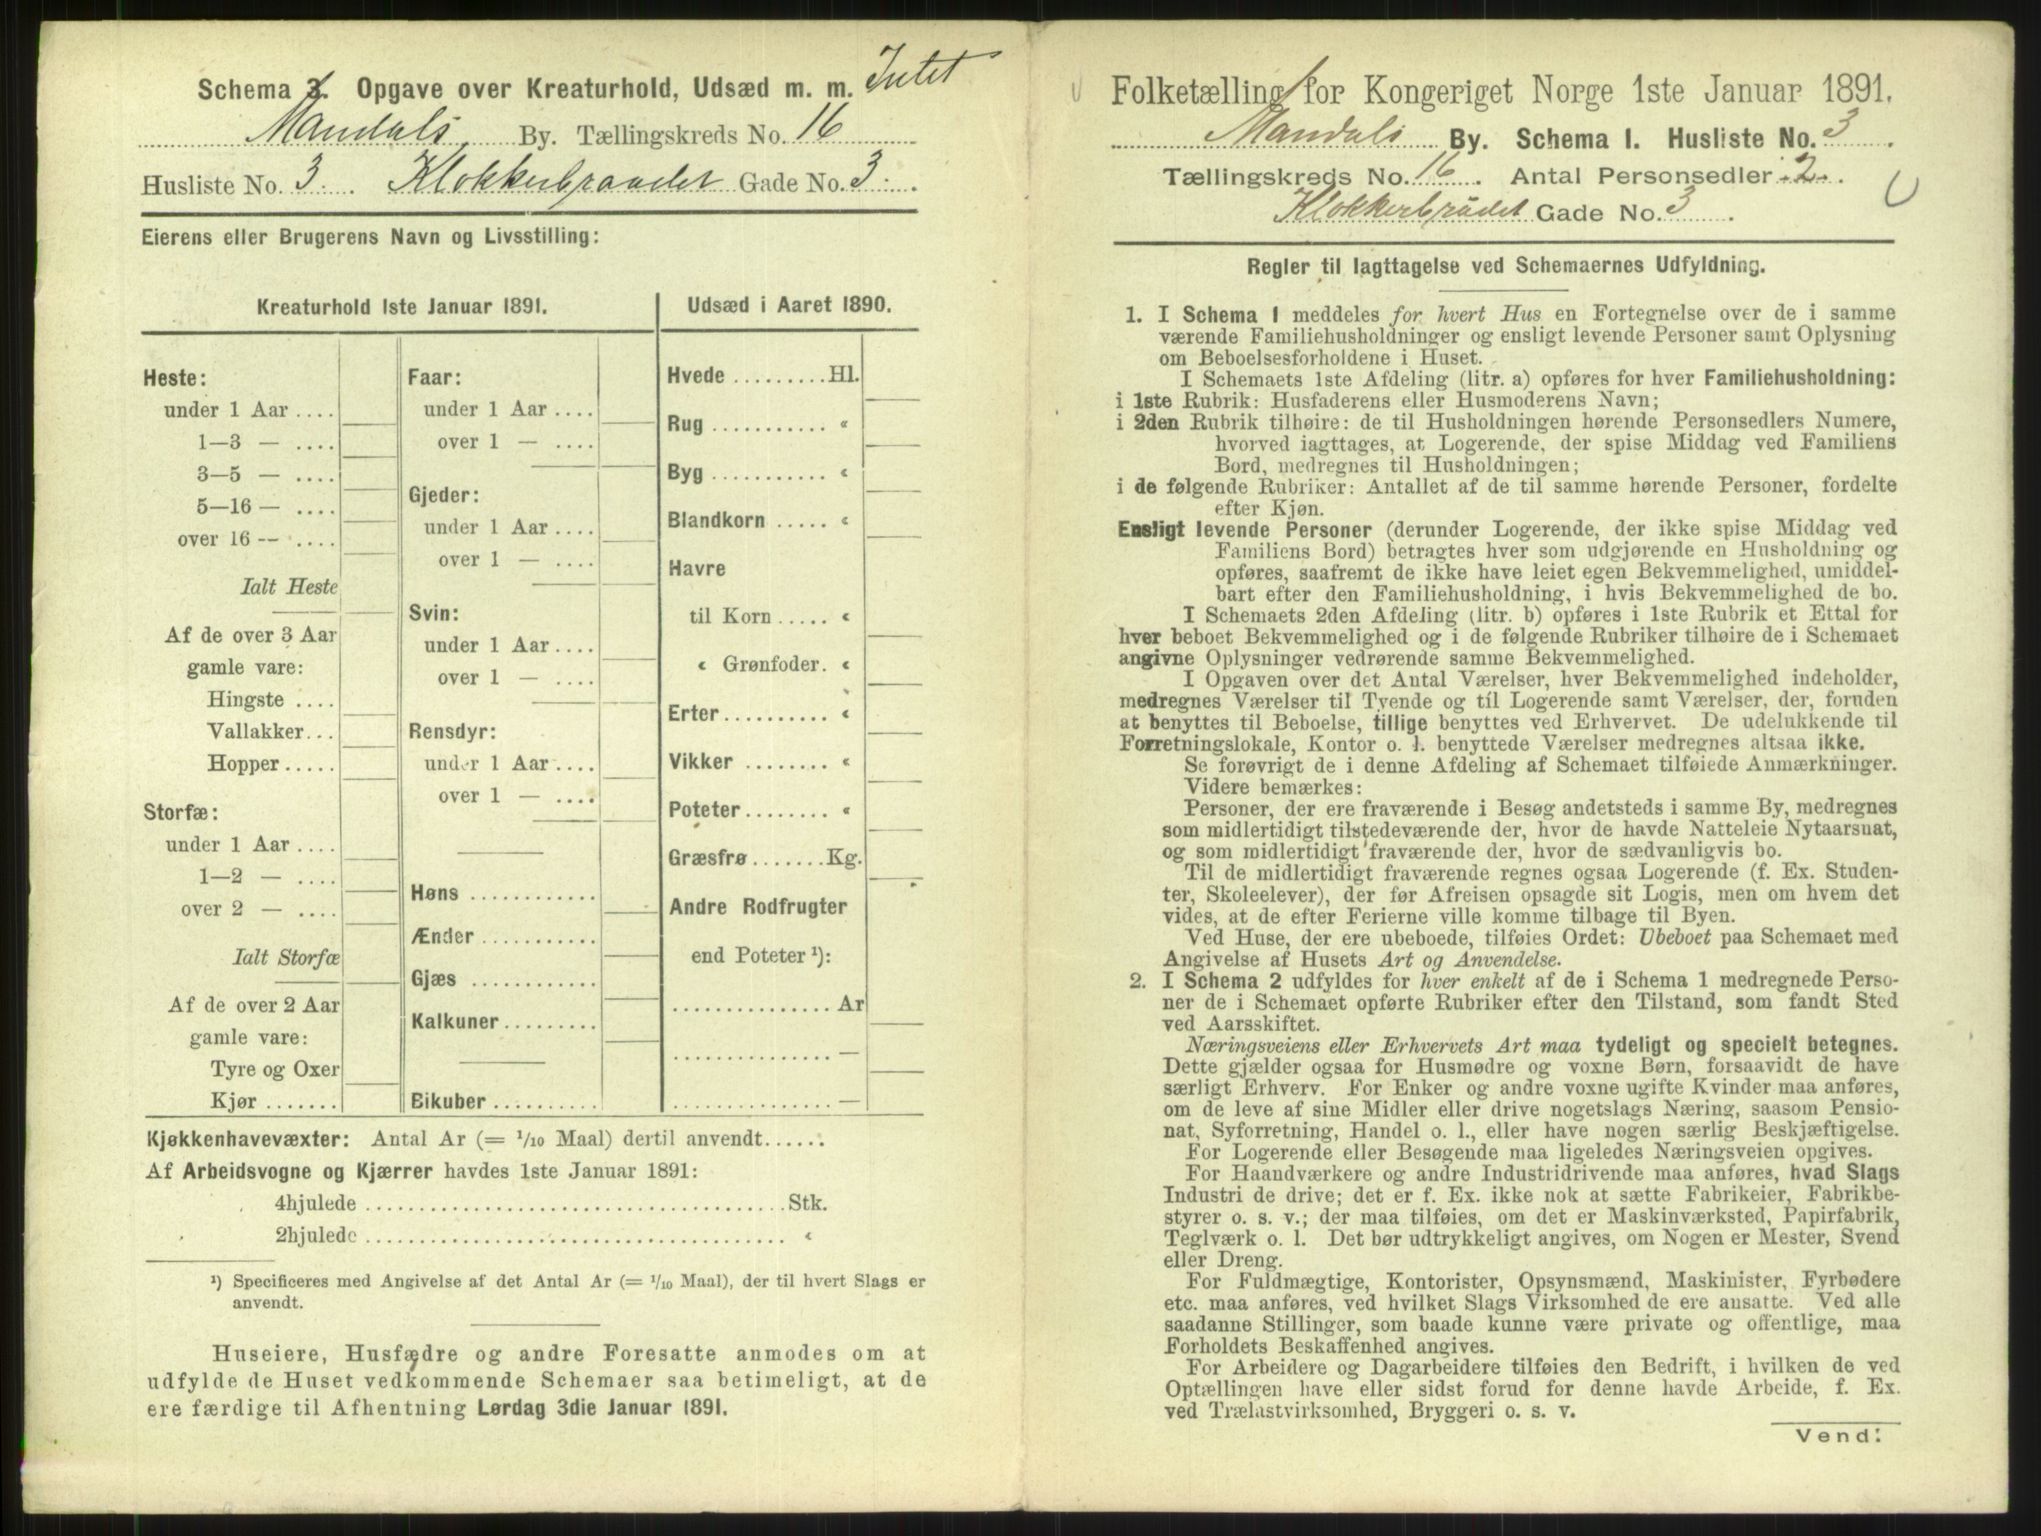 Schema 3. Opgave over Kreaturhold, Udsæd m. m. Intet
Mandals By. Tællingskreds No. 16
Husliste No. 3. Klokkerbraadet Gade No. 3.
Eierens eller Brugerens Navn og Livsstilling:
Kreaturhold 1ste Januar 1891.
Heste:
under 1 Aar ....
1—3 — ....
3—5 — ....
5—16 — ....
over 16 — ....
Ialt Heste
Af de over 3 Aar
gamle vare:
Hingste ....
Vallakker...
Hopper.....
Storfæ:
under 1 Aar ....
1—2 — ....
over 2 — ....
Ialt Storfæ
Af de over 2 Aar
gamle vare:
Tyre og Oxer
Kjør .......
Faar:
under 1 Aar ....
over 1 — ....
Gjeder:
under 1 Aar ....
over 1 — ....
Svin:
under 1 Aar ....
over 1 — ....
Rensdyr:
under 1 Aar ....
over 1 — ....
Høns ............
Ænder...........
Gjæs ............
Kalkuner.........
Bikuber ..........
Udsæd i Aaret 1890.
Hvede .........Hl.
Rug ........... «
Byg ........... «
Blandkorn ..... «
Havre
til Korn ..... «
« Grønfoder. «
Erter.......... «
Vikker ........ «
Poteter........ «
Græsfrø .......Kg.
Andre Rodfrugter
end Poteter ¹):
............... Ar
...............—
...............—
Kjøkkenhavevæxter: Antal Ar (= 1/10 Maal) dertil anvendt......
Af Arbeidsvogne og Kjærrer havdes 1ste Januar 1891:
4hjulede ....................................... Stk.
2hjulede ....................................... «
¹) Specificeres med Angivelse af det Antal Ar (= 1/10 Maal), der til hvert Slags er
anvendt.
Huseiere, Husfædre og andre Foresatte anmodes om at
udfylde de Huset vedkommende Schemaer saa betimeligt, at de
ere færdige til Afhentning Lørdag 3die Januar 1891.
Folketælling for Kongeriget Norge 1ste Januar 1891.
Mandals By. Schema I. Husliste No. 3
Tællingskreds No. 16. Antal Personsedler 2.
Klokkerbrådet Gade No. 3.
Regler til Iagttagelse ved Schemaernes Udfyldning.
1. I Schema 1 meddeles for hvert Hus en Fortegnelse over de i samme
værende Familiehusholdninger og ensligt levende Personer samt Oplysning
om Beboelsesforholdene i Huset.
I Schemaets 1ste Afdeling (litr. a) opføres for hver Familiehusholdning:
i 1ste Rubrik: Husfaderens eller Husmoderens Navn;
i 2den Rubrik tilhøire: de til Husholdningen hørende Personsedlers Numere,
hvorved iagttages, at Logerende, der spise Middag ved Familiens
Bord, medregnes til Husholdningen;
i de følgende Rubriker: Antallet af de til samme hørende Personer, fordelte
efter Kjøn.
Ensligt levende Personer (derunder Logerende, der ikke spise Middag ved
Familiens Bord) betragtes hver som udgjørende en Husholdning og
opføres, saafremt de ikke have leiet egen Bekvemmelighed, umiddel-
bart efter den Familiehusholdning, i hvis Bekvemmelighed de bo.
I Schemaets 2den Afdeling (litr. b) opføres i 1ste Rubrik et Ettal for
hver beboet Bekvemmelighed og i de følgende Rubriker tilhøire de i Schemaet
angivne Oplysninger vedrørende samme Bekvemmelighed.
I Opgaven over det Antal Værelser, hver Bekvemmelighed indeholder,
medregnes Værelser til Tyende og til Logerende samt Værelser, der, foruden
at benyttes til Beboelse, tillige benyttes ved Erhvervet. De udelukkende til
Forretningslokale, Kontor o. l. benyttede Værelser medregnes altsaa ikke.
Se forøvrigt de i denne Afdeling af Schemaet tilføiede Anmærkninger.
Videre bemærkes:
Personer, der ere fraværende i Besøg andetsteds i samme By, medregnes
som midlertidigt tilstedeværende der, hvor de havde Natteleie Nytaarsnat,
og som midlertidigt fraværende der, hvor de sædvanligvis bo.
Til de midlertidigt fraværende regnes ogsaa Logerende (f. Ex. Studen-
ter, Skoleelever), der før Afreisen opsagde sit Logis, men om hvem det
vides, at de efter Ferierne ville komme tilbage til Byen.
Ved Huse, der ere ubeboede, tilføies Ordet: Ubeboet paa Schemaet med
Angivelse af Husets Art og Anvendelse.
2. I Schema 2 udfyldes for hver enkelt af de i Schema 1 medregnede Perso-
ner de i Schemaet opførte Rubriker efter den Tilstand, som fandt Sted
ved Aarsskiftet.
Næringsveiens eller Erhvervets Art maa tydeligt og specielt betegnes.
Dette gjælder ogsaa for Husmødre og voxne Børn, forsaavidt de have
særligt Erhverv. For Enker og andre voxne ugifte Kvinder maa anføres,
om de leve af sine Midler eller drive nogetslags Næring, saasom Pensio-
nat, Syforretning, Handel o. l., eller have nogen særlig Beskjæftigelse.
For Logerende eller Besøgende maa ligeledes Næringsveien opgives.
For Haandværkere og andre Industridrivende maa anføres, hvad Slags
Industri de drive; det er f. Ex. ikke nok at sætte Fabrikeier, Fabrikbe-
styrer o. s. v.; der maa tilføies, om det er Maskinværksted, Papirfabrik,
Teglværk o. l. Det bør udtrykkeligt angives, om Nogen er Mester, Svend
eller Dreng.
For Fuldmægtige, Kontorister, Opsynsmænd, Maskinister, Fyrbødere
etc. maa anføres, ved hvilket Slags Virksomhed de ere ansatte. Ved alle
saadanne Stillinger, som baade kunne være private og offentlige, maa
Forholdets Beskaffenhed angives.
For Arbeidere og Dagarbeidere tilføies den Bedrift, i hvilken de ved
Optællingen have eller sidst forud for denne havde Arbeide, f. Ex.
ved Trælastvirksomhed, Bryggeri o. s. v.
Vend!